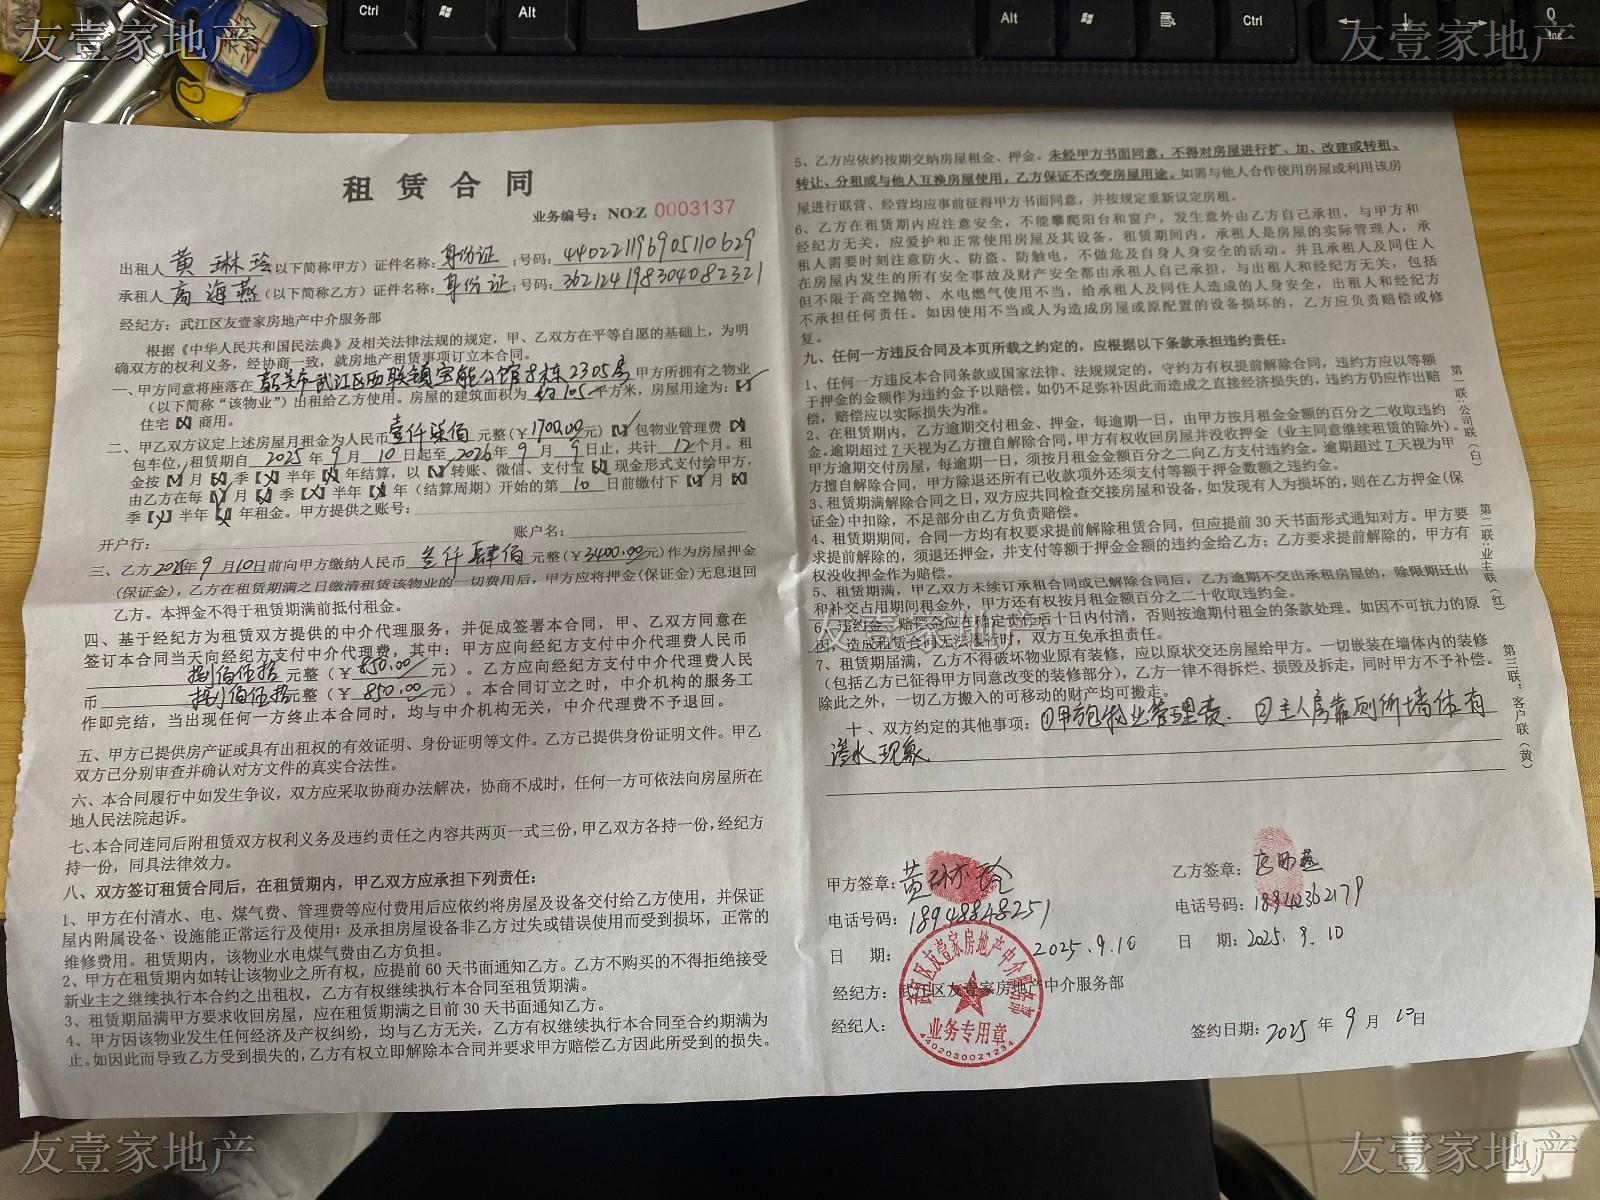 友壹家地产
友壹家地产
Ctrl
Alt
Alt
Ctrl
Q
Ins
租 赁 合 同
业务编号：NO:Z 0003137
出租人 黄琳玲（以下简称甲方）证件名称：身份证；号码：440221196905110629
承租人 高海燕（以下简称乙方）证件名称：身份证；号码：362124198304082321
经纪方：武江区友壹家房地产中介服务部
根据《中华人民共和国民法典》及相关法律法规的规定，甲、乙双方在平等自愿的基础上，为明
确双方的权利义务，经协商一致，就房地产租赁事项订立本合同。
一、甲方同意将座落在 韶关市武江区西联镇宝能公馆8栋2305房 甲方所拥有之物业
（以下简称“该物业”）出租给乙方使用。房屋的建筑面积为 约105 平方米，房屋用途为：【✓】
住宅【X】商用。
二、甲乙双方议定上述房屋月租金为人民币 壹仟柒佰 元整（￥1700.00元）【✓】包物业管理费【X】
包车位，租赁期自 2025 年 9 月 10 日起至 2026 年 9 月 9 日止，共计 12 个月。租
金按【✓】月【X】季【X】半年【X】年结算，以【✓】转账、微信、支付宝【X】现金形式支付给甲方，
由乙方在每【✓】月【X】季【X】半年【X】年（结算周期）开始的第 10 日前缴付下【✓】月【X】
季【X】半年【X】年租金。甲方提供之账号：
开户行： 账户名：
三、乙方 2025年9月10日前向甲方缴纳人民币 叁仟肆佰 元整（￥3400.00元）作为房屋押金
（保证金），乙方在租赁期满之日缴清租赁该物业的一切费用后，甲方应将押金(保证金)无息退回
乙方。本押金不得于租赁期满前抵付租金。
四、基于经纪方为租赁双方提供的中介代理服务，并促成签署本合同，甲、乙双方同意在
签订本合同当天向经纪方支付中介代理费，其中：甲方应向经纪方支付中介代理费人民币
捌佰伍拾 元整（￥ 850.00 元）。乙方应向经纪方支付中介代理费人民
币 捌佰伍拾 元整（￥ 850.00 元）。本合同订立之时，中介机构的服务工
作即完结，当出现任何一方终止本合同时，均与中介机构无关，中介代理费不予退回。
五、甲方已提供房产证或具有出租权的有效证明、身份证明等文件。乙方已提供身份证明文件。甲乙
双方已分别审查并确认对方文件的真实合法性。
六、本合同履行中如发生争议，双方应采取协商办法解决，协商不成时，任何一方可依法向房屋所在
地人民法院起诉。
七、本合同连同后附租赁双方权利义务及违约责任之内容共两页一式三份，甲乙双方各持一份，经纪方
持一份，同具法律效力。
八、双方签订租赁合同后，在租赁期内，甲乙双方应承担下列责任：
1、甲方在付清水、电、煤气费、管理费等应付费用后应依约将房屋及设备交付给乙方使用，并保证
屋内附属设备、设施能正常运行及使用；及承担房屋设备非乙方过失或错误使用而受到损坏，正常的
维修费用。租赁期内，该物业水电煤气费由乙方负担。
2、甲方在租赁期内如转让该物业之所有权，应提前60天书面通知乙方。乙方不购买的不得拒绝接受
新业主之继续执行本合约之出租权，乙方有权继续执行本合同至租赁期满。
3、租赁期届满甲方要求收回房屋，应在租赁期满之日前30天书面通知乙方。
4、甲方因该物业发生任何经济及产权纠纷，均与乙方无关，乙方有权继续执行本合同至合约期满为
止。如因此而导致乙方受到损失的，乙方有权立即解除本合同并要求甲方赔偿乙方因此所受到的损失。
5、乙方应依约按期交纳房屋租金、押金。未经甲方书面同意，不得对房屋进行扩、加、改建或转租、
转让、分租或与他人互换房屋使用，乙方保证不改变房屋用途。如需与他人合作使用房屋或利用该房
屋进行联营、经营均应事前征得甲方书面同意，并按规定重新议定房租。
6、乙方在租赁期内应注意安全，不能攀爬阳台和窗户，发生意外由乙方自己承担，与甲方和
经纪方无关，应爱护和正常使用房屋及其设备，租赁期间内，承租人是房屋的实际管理人，承
租人需要时刻注意防火、防盗、防触电，不做危及自身人身安全的活动。并且承租人及同住人
在房屋内发生的所有安全事故及财产安全都由承租人自己承担，与出租人和经纪方无关，包括
但不限于高空抛物、水电燃气使用不当，给承租人及同住人造成的人身安全，出租人和经纪方
不承担任何责任。如因使用不当或人为造成房屋或原配置的设备损坏的，乙方应负责赔偿或修
复。
九、任何一方违反合同及本页所载之约定的，应根据以下条款承担违约责任：
1、任何一方违反本合同条款或国家法律、法规规定的，守约方有权提前解除合同，违约方应以等额
于押金的金额作为违约金予以赔偿。如仍不足弥补因此而造成之直接经济损失的，违约方仍应作出赔
偿，赔偿应以实际损失为准。
2、在租赁期内，乙方逾期交付租金、押金，每逾期一日，由甲方按月租金金额的百分之二收取违约
金。逾期超过7天视为乙方擅自解除合同，甲方有权收回房屋并没收押金（业主同意继续租赁的除外）。
甲方逾期交付房屋，每逾期一日，须按月租金金额百分之二向乙方支付违约金。逾期超过7天视为甲
方擅自解除合同，甲方除退还所有已收款项外还须支付等额于押金数额之违约金。
3、租赁期满解除合同之日，双方应共同检查交接房屋和设备，如发现有人为损坏的，则在乙方押金（保
证金）中扣除，不足部分由乙方负责赔偿。
4、租赁期期间，合同一方均有权要求提前解除租赁合同，但应提前30天书面形式通知对方。甲方要
求提前解除的，须退还押金，并支付等额于押金金额的违约金给乙方；乙方要求提前解除的，甲方有
权没收押金作为赔偿。
5、租赁期满，甲乙双方未续订承租合同或已解除合同后，乙方逾期不交出承租房屋的，除限期迁出
和补交占用期间租金外，甲方还有权按月租金额百分之二十收取违约金。
6、违约金、赔偿金应在确定责任后十日内付清，否则按逾期付租金的条款处理。如因不可抗力的原
因，造成租赁合同无法履行时，双方互免承担责任。
7、租赁期届满，乙方不得破坏物业原有装修，应以原状交还房屋给甲方。一切嵌装在墙体内的装修
（包括乙方已征得甲方同意改变的装修部分），乙方一律不得拆烂、损毁及拆走，同时甲方不予补偿。
除此之外，一切乙方搬入的可移动的财产均可搬走。
十、双方约定的其他事项：①甲方包物业管理费、②主人房靠厕所墙体有
渗水现象
第一联：公司联（白） 第二联：业主联（红） 第三联：客户联（黄）
友壹家地产
甲方签章：黄琳玲
电话号码：18948848251
日 期：2025.9.10
经纪方：武江区友壹家房地产中介服务部
经纪人：
乙方签章：高海燕
电话号码：18942362179
日 期：2025.9.10
签约日期：2025 年 9 月 10日
武江区友壹家房地产中介服务部
业务专用章
4402030021234
友壹家地产
友壹家地产